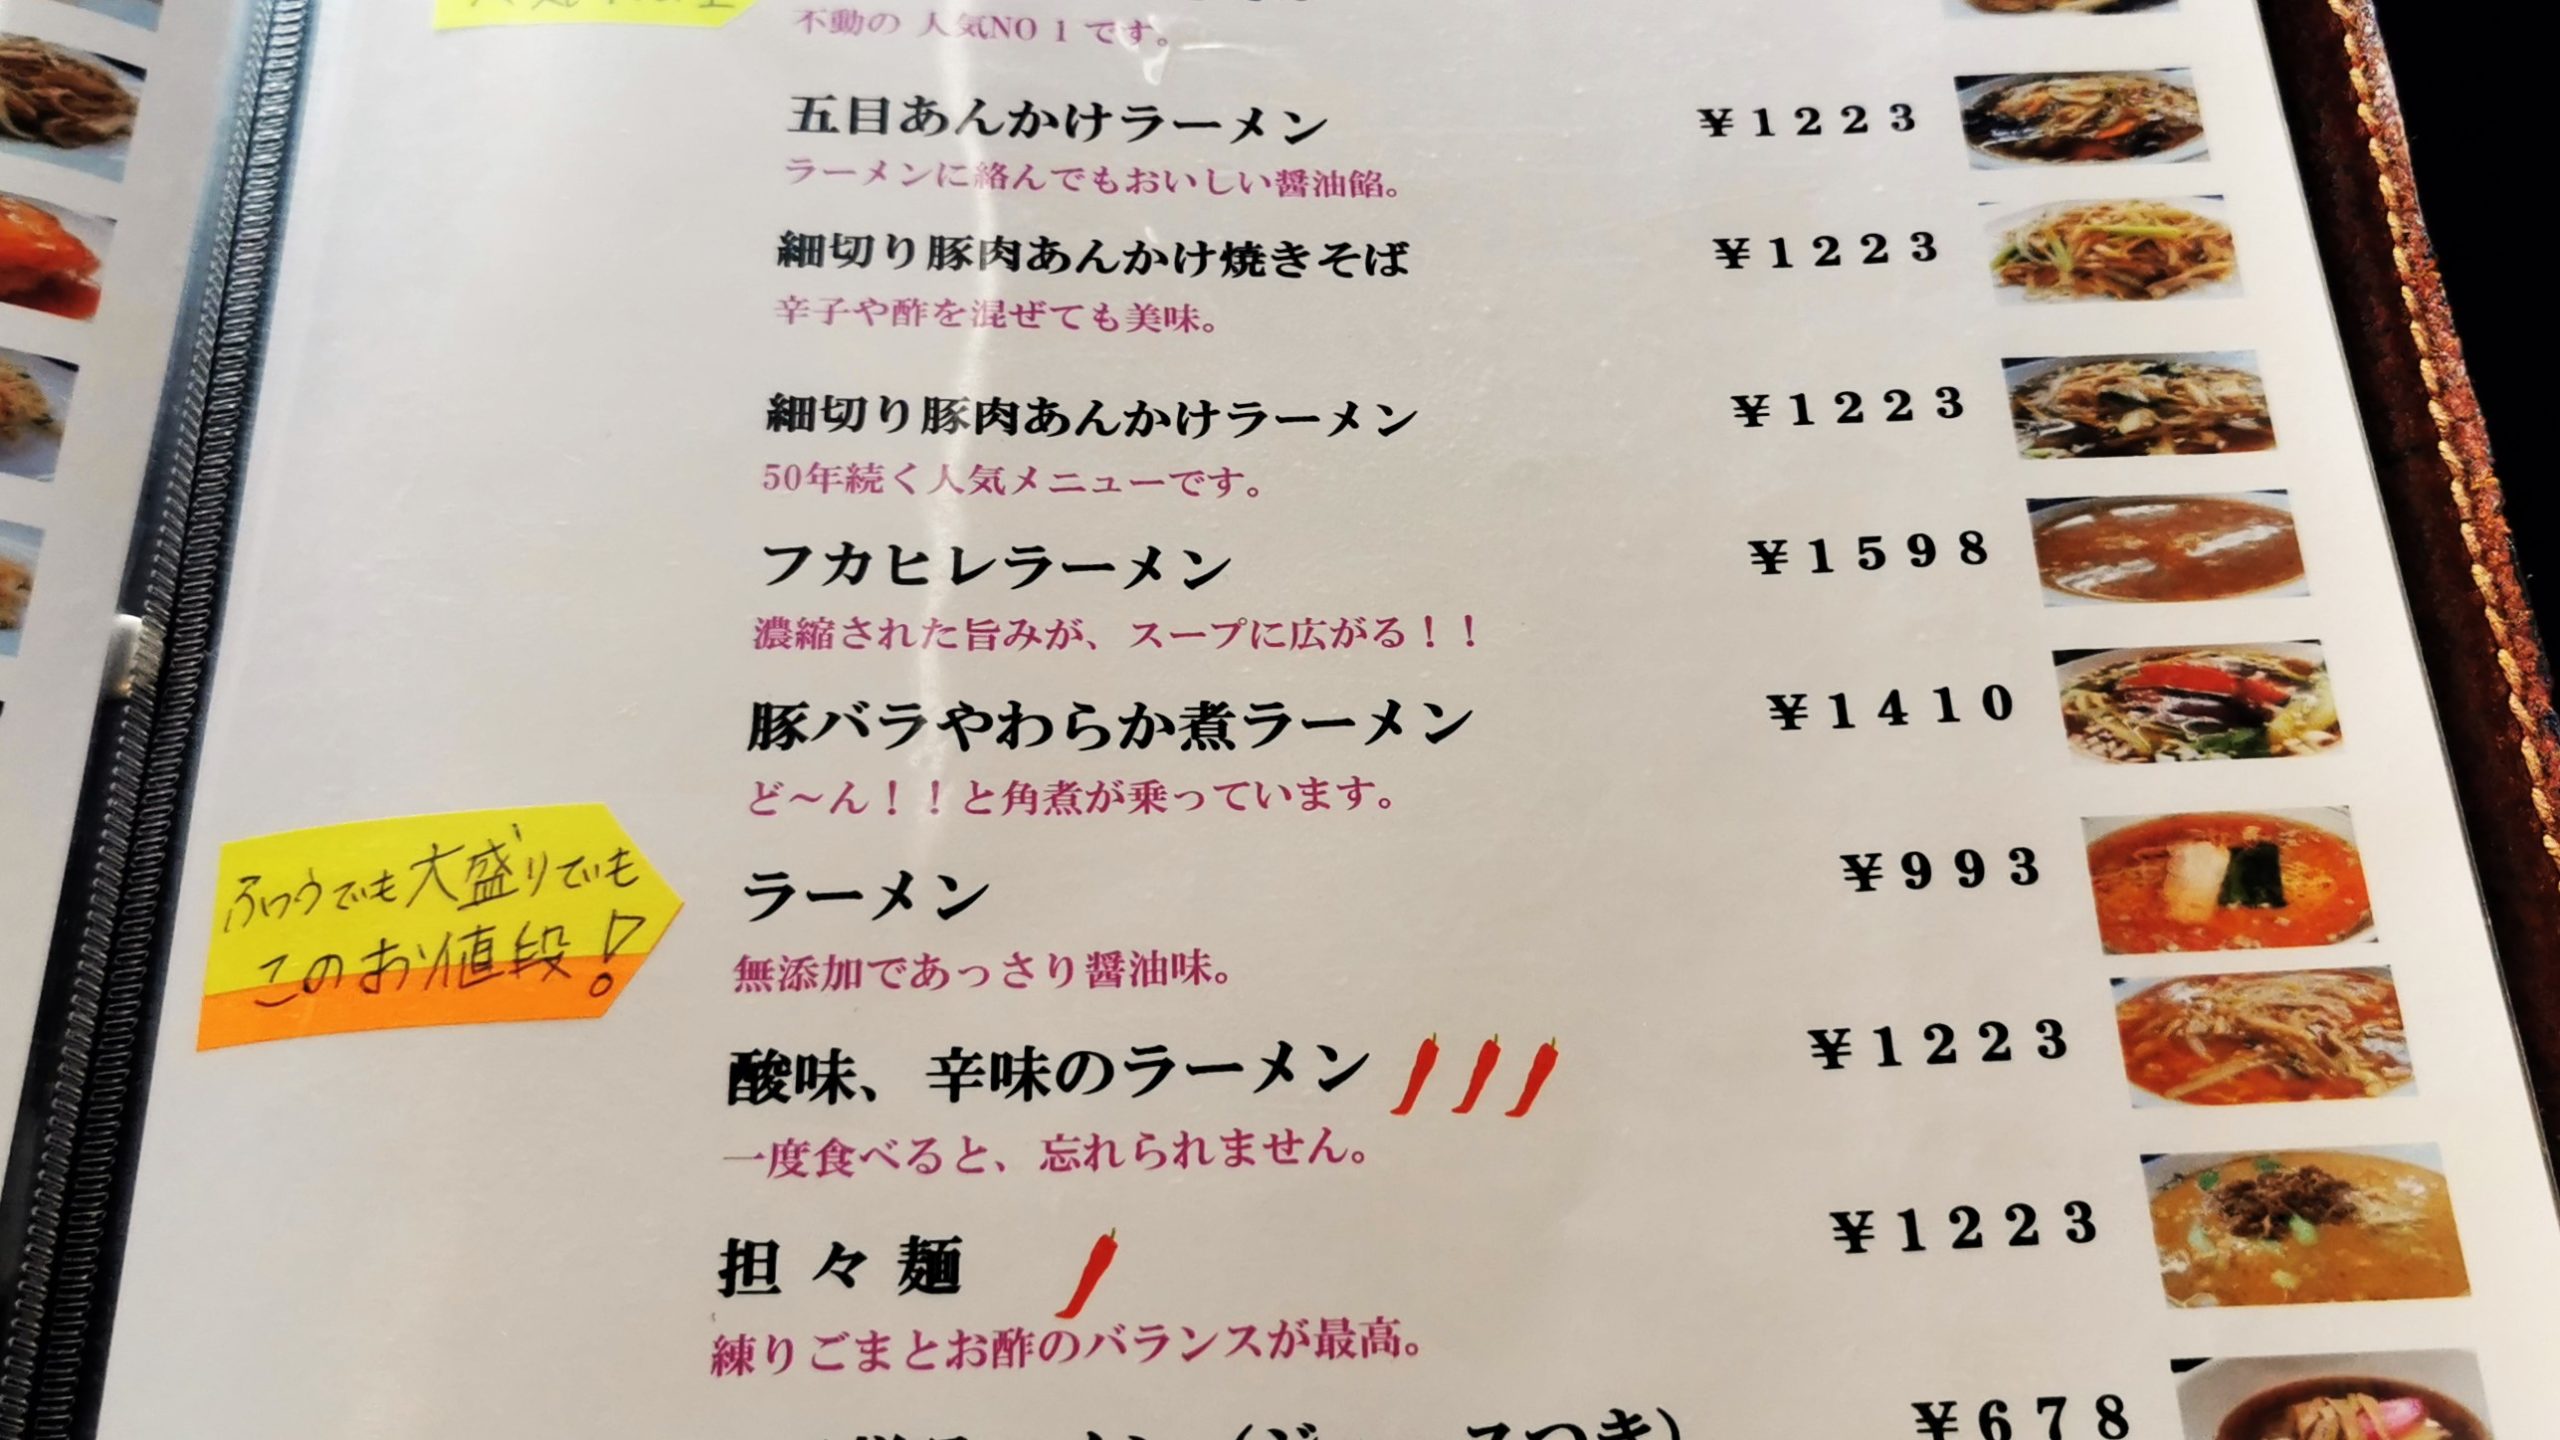 不動の 人気NO 1 です。
五目あんかけラーメン ¥1223
ラーメンに絡んでもおいしい醤油餡。
細切り豚肉あんかけ焼きそば ¥1223
辛子や酢を混ぜても美味。
細切り豚肉あんかけラーメン ¥1223
50年続く人気メニューです。
フカヒレラーメン ¥1598
濃縮された旨みが、スープに広がる!!
豚バラやわらか煮ラーメン ¥1410
ど〜ん!!と角煮が乗っています。
ふつうでも大盛りでも
このお値段!
ラーメン ¥993
無添加であっさり醤油味。
酸味、辛味のラーメン ¥1223
一度食べると、忘れられません。
担々麺 ¥1223
練りごまとお酢のバランスが最高。
¥678